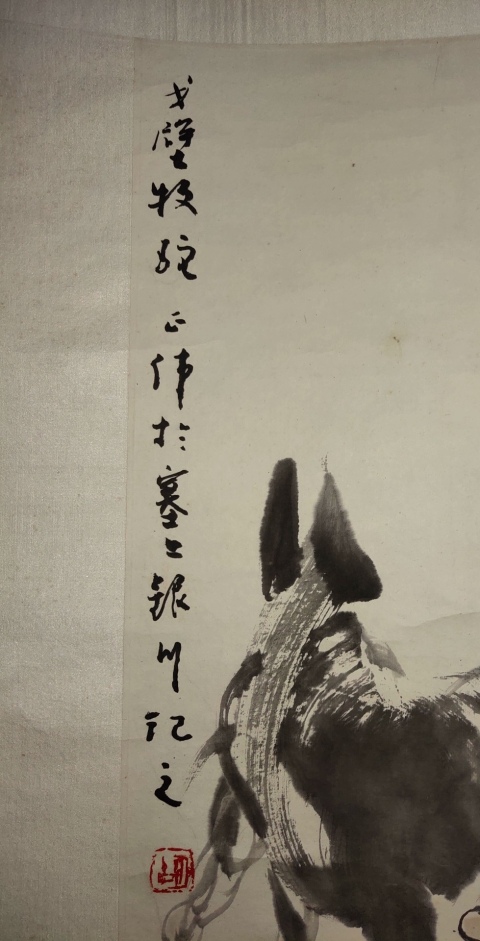 戈壁牧驼正伟於塞上银川记之